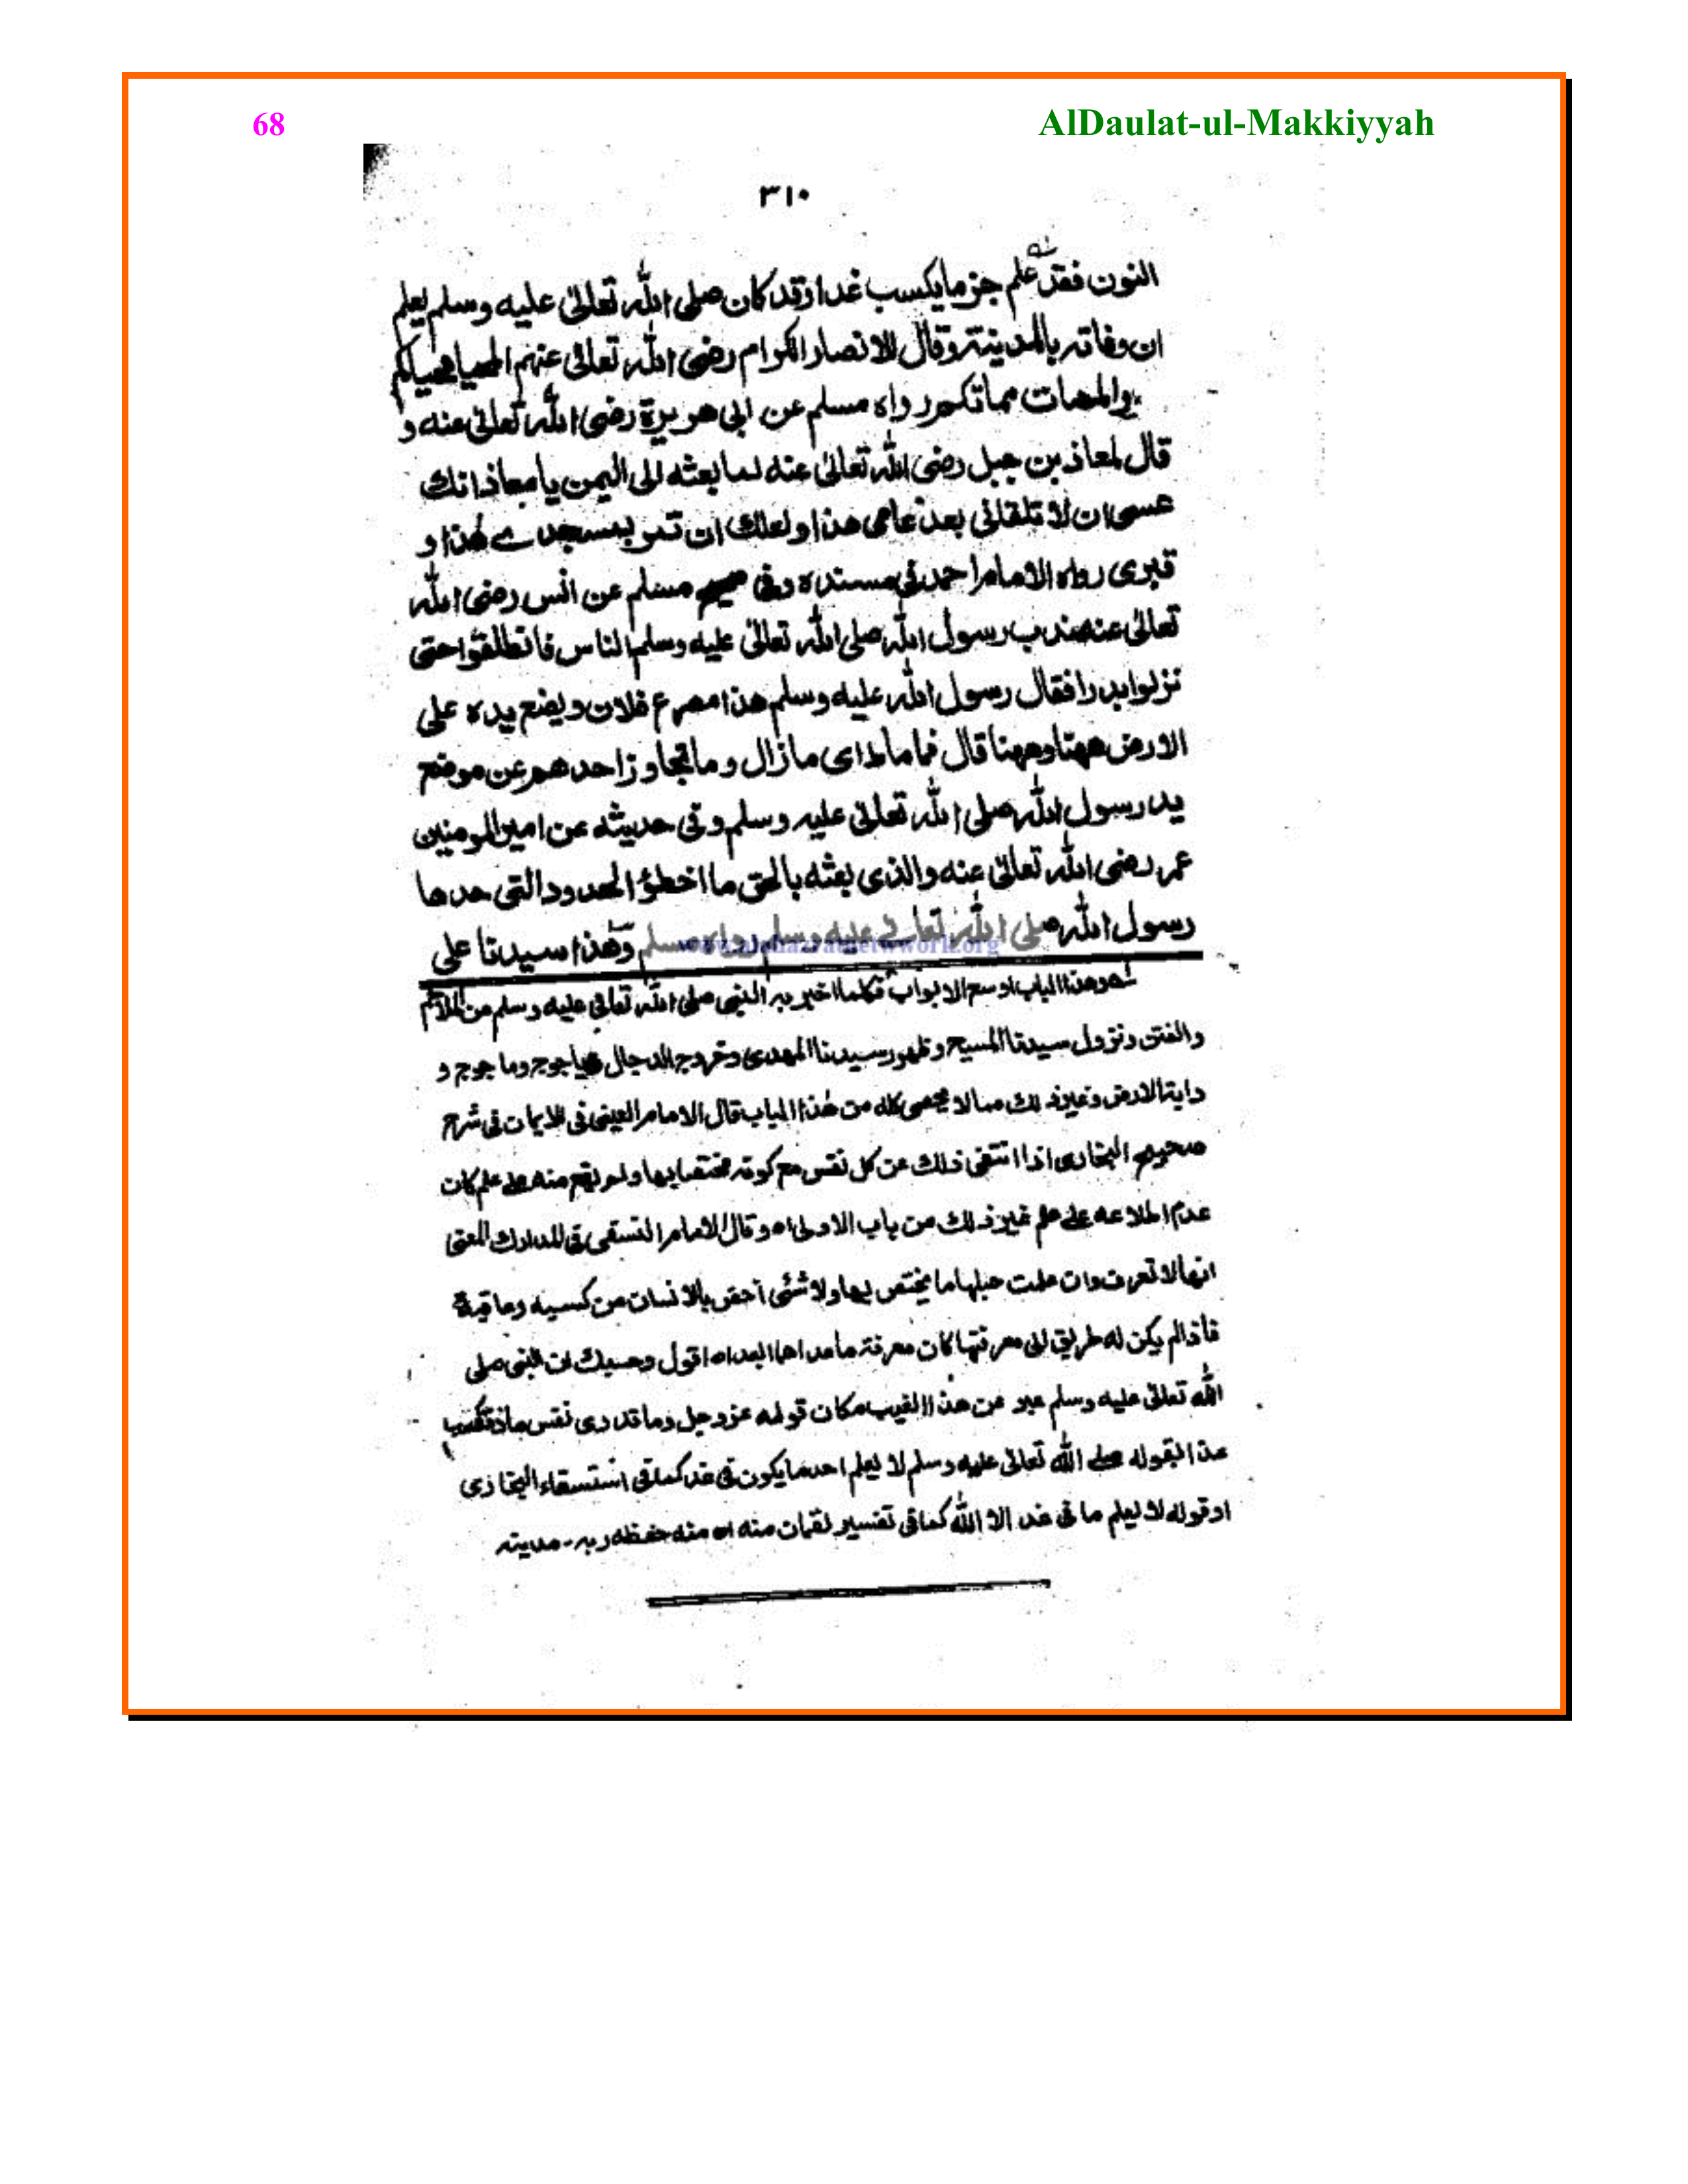 68
AlDaulat-ul-Makkiyyah
٣١٠
النون فقد علم جزما يكسب غدا وقد كان صلى الله تعالى عليه وسلم يعلم
ان وفاته بالمدينة وقال للانصار الكرام رضى الله تعالى عنهم المحيا محياكم
والممات مماتكم رواه مسلم عن ابى هريرة رضى الله تعالى عنه و
قال لمعاذ بن جبل رضى الله تعالى عنه لما بعثه الى اليمن يا معاذ انك
عسى ان لا تلقانى بعد عامى هذا ولعلك ان تمر بمسجدے هٰذا و
قبرى رواه الامام احمد فى مسنده وفى صحيح مسلم عن انس رضى الله
تعالى عنه ندب رسول الله صلى الله تعالى عليه وسلم الناس فانطلقوا حتى
نزلوا بدرا فقال رسول الله عليه وسلم هذا مصرع فلان ويضع يده على
الارض ههنا وههنا قال فما ماط اى مازال وما تجاوز احدهم عن موضع
يد رسول الله صلى الله تعالى عليه وسلم وفى حديثه عن امير المومنين
عمر رضى الله تعالى عنه والذى بعثه بالحق ما اخطؤ الحدود التى حدها
رسول الله صلى الله تعالے عليه وسلم رواه مسلم وهٰذا سيدنا على
وهذا الباب اوسع الابواب فكلما اخبر به النبى صلى الله تعالى عليه وسلم من الملاحم
والفتن ونزول سيدنا المسيح وظهور سيدنا المهدى وخروج الدجال وياجوج وماجوج و
دابة الارض وغير ذلك مما لا يحصى كله من هٰذا الباب قال الامام العينى فى الايمان فى شرح
صحيح البخارى اذا انتفى ذلك عن كل نفس مع كونه مختصا بها ولم يقع منه على علم كان
عدم اطلاعه على علم غير ذلك من باب الاولى اه وقال الامام النسفى فى المدارك المعنى
انها لا تعرف وان عملت حيلها ما يختص بها ولا شئى اخص بالانسان من كسبه وعاقبة
فاذا لم يكن له طريق الى معرفتها كان معرفة ما عداهما ابعد اه اقول وحسبك ان النبى صلى
الله تعالى عليه وسلم عبر عن هذا الغيب مكان قوله عز وجل وما تدرى نفس ماذا تكسب
غدا بقوله صلے الله تعالى عليه وسلم لا يعلم احد ما يكون فى غد كما فى استسقاء البخارى
او قوله لا يعلم ما فى غد الا الله كما فى تفسير لقمان منه اه منه حفظه ربه - مدينه